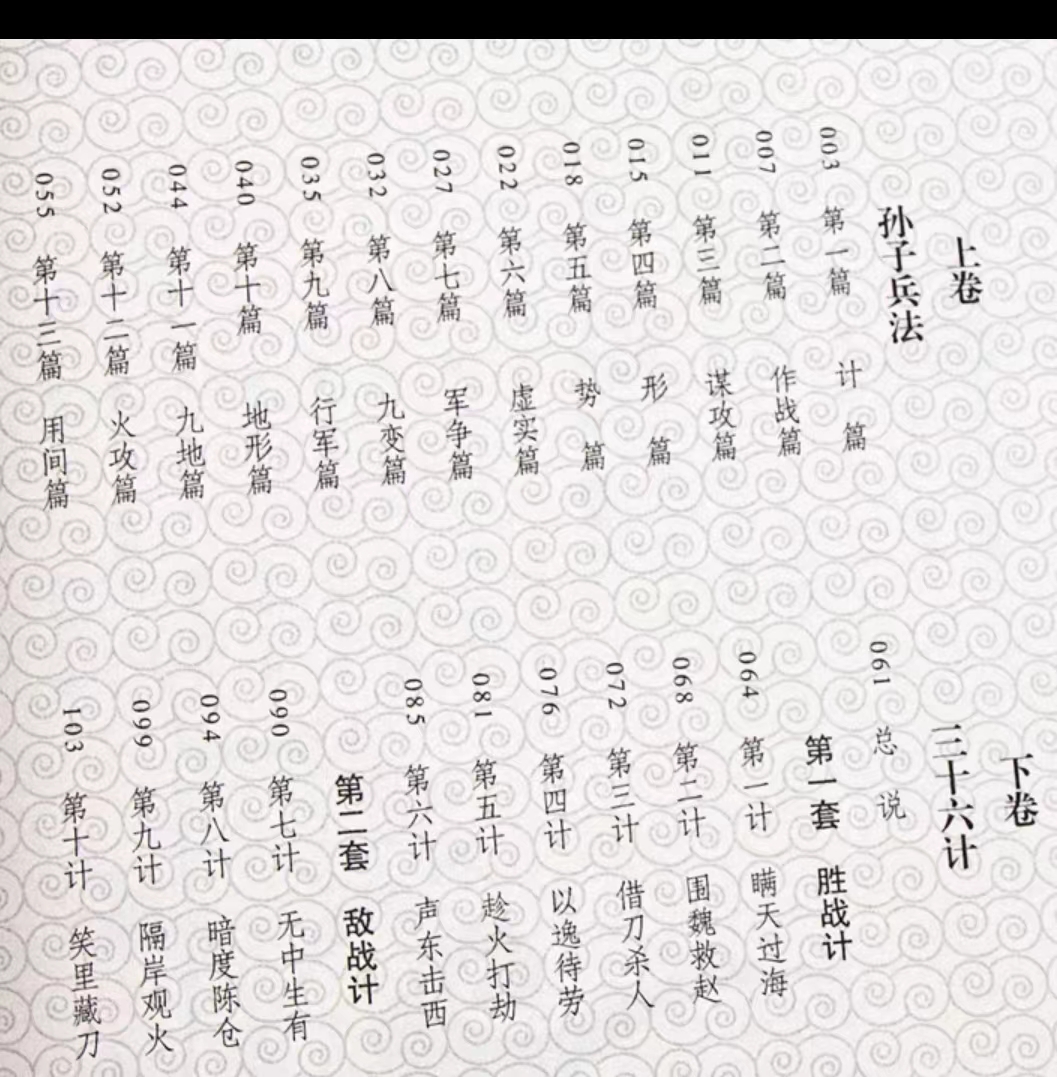 上卷
孙子兵法
003 第一篇 计篇
007 第二篇 作战篇
011 第三篇 谋攻篇
015 第四篇 形篇
018 第五篇 势篇
022 第六篇 虚实篇
027 第七篇 军争篇
032 第八篇 九变篇
035 第九篇 行军篇
040 第十篇 地形篇
044 第十一篇 九地篇
052 第十二篇 火攻篇
055 第十三篇 用间篇
下卷
三十六计
061 总说
第一套 胜战计
064 第一计 瞒天过海
068 第二计 围魏救赵
072 第三计 借刀杀人
076 第四计 以逸待劳
081 第五计 趁火打劫
085 第六计 声东击西
第二套 敌战计
090 第七计 无中生有
094 第八计 暗度陈仓
099 第九计 隔岸观火
103 第十计 笑里藏刀